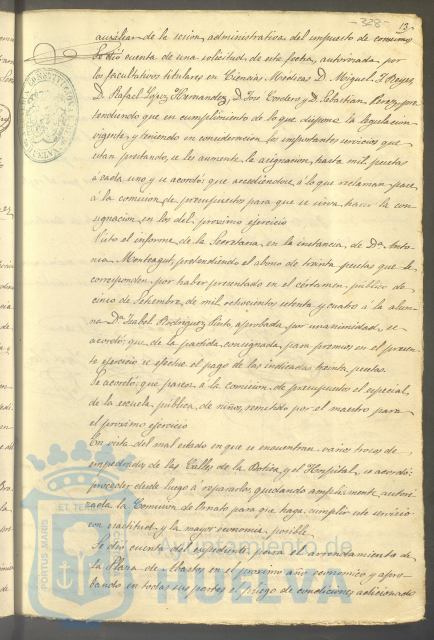 328 13
auxiliar de la ución administrativa del impuesto de consumo
Se dió cuenta de una solicitud de esta fecha, autorizada por
los facultativos titulares en Ciencias Médicas D. Miguel F. Reyes,
D. Rafael López Hernandez, D. José Cordero y D. Sebastian Perez, pre
tendiendo que en cumplimiento de lo que dispone la legislacion
vigente, y teniendo en consideracion los importantes servicios que
estan prestando, se les aumente la asignacion, hasta mil pesetas
á cada uno y se acordó: que accediendose á lo que reclaman pase
á la comision de presupuestos para que se sirva hacer la con
signacion en los del proximo ejercicio
Visto el informe de la Secretaria en la instancia de Dª. Anto
nia Monteagut pretendiendo el abono de treinta pesetas que le
corresponden por haber presentado en el certámen público de
cinco de Setiembre de mil ochocientos setenta y cuatro á la alum
na Dª. Isabel Rodriguez Pinto, aprobada por unanimidad, se
acordó: que de la partida consignada para premios en el presen
te ejercicio se efectue el pago de las indicadas treinta pesetas.
Se acordó: que pase á la comision de presupuestos el especial
de la escuela pública de niños, remitido por el maestro para
el proximo ejercicio
En vista del mal estado en que se encuentran varios trozos de
empedrados de las Calles de la Botica y el Hospital, se acordó:
proceder desde luego á repararlos, quedando ampliamente autori
zada la Comision de Ornato para que haga cumplir este servicio
con exactitud y la mayor economia posible.
Se dió cuenta del expediente para el arrendamiento de
la Plaza de Abastos en el proximo año economico y apro
bando en todas sus partes el pliego de condiciones adicionado
PORTUS MARIS ET TERRAE
Ayuntamiento de
HUELVA